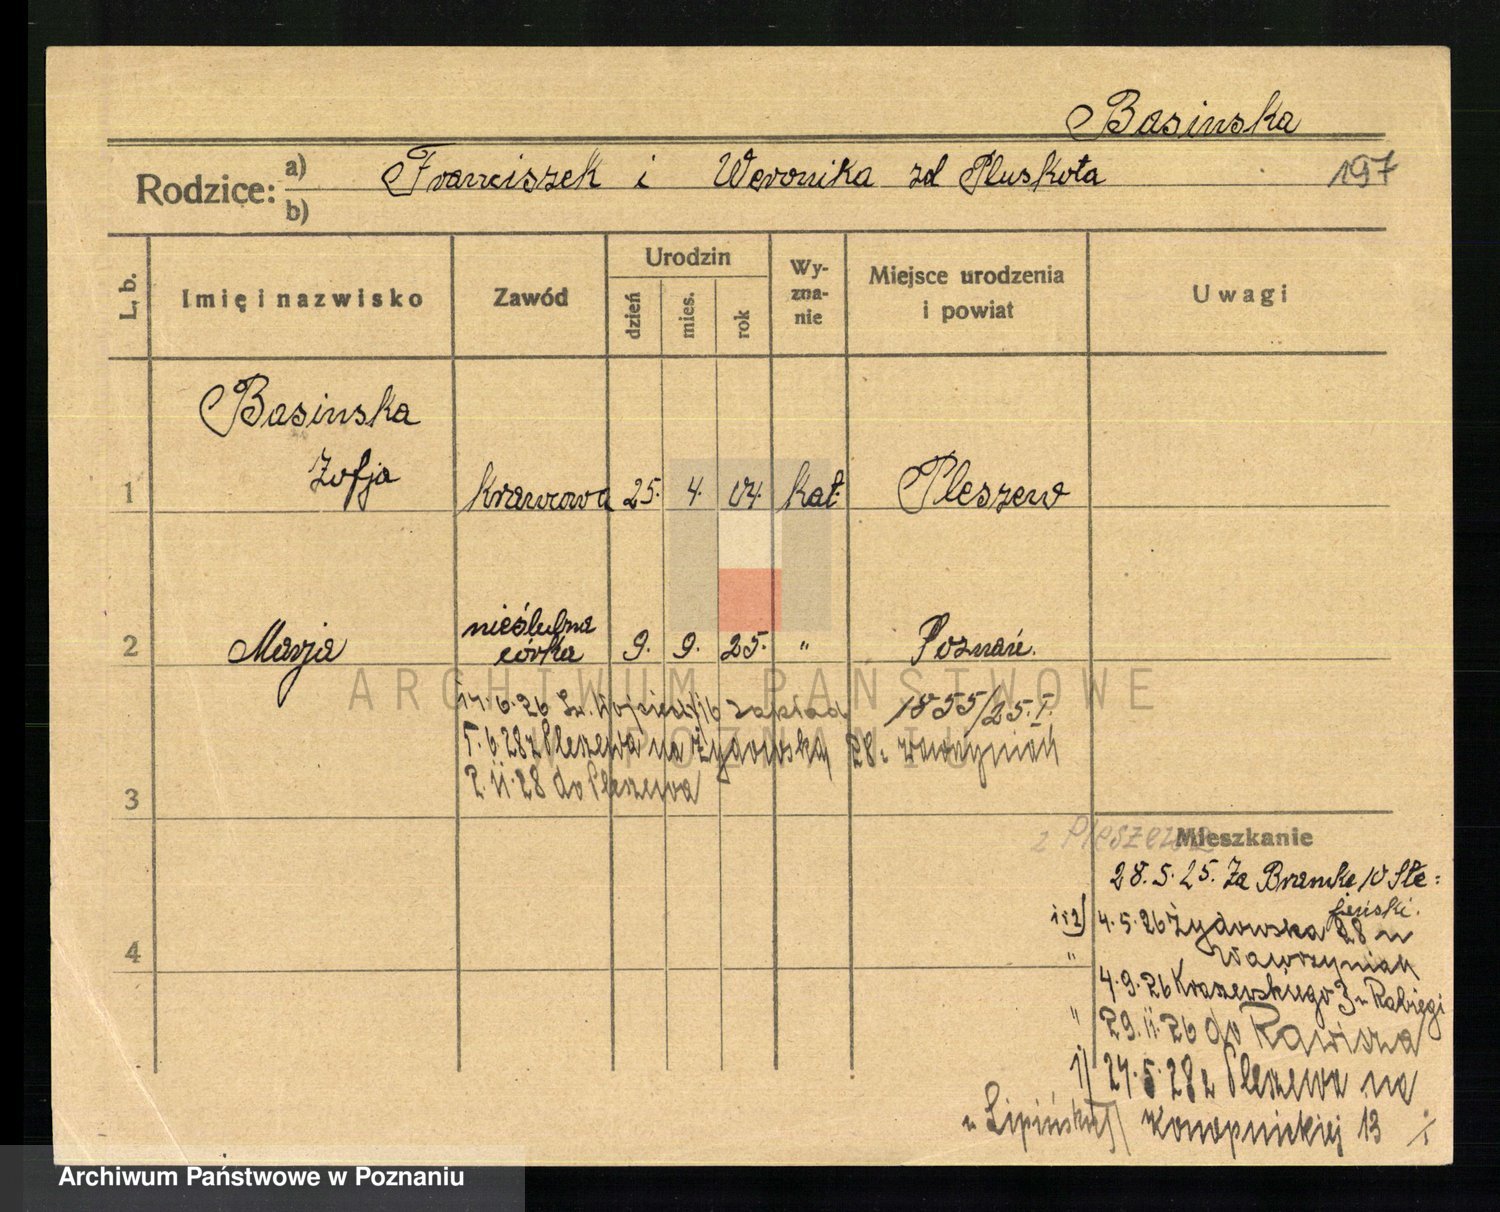 Basinska
Rodzice: a) Franciszek i Weronika zd Pluskota 197
b)
L. b.
Imię i nazwisko
Zawód
Urodzin
dzień
mies.
rok
Wy-
zna-
nie
Miejsce urodzenia
i powiat
Uwagi
Basinska
Zofja
1 Krawcowa 25. 4. 04. kat. Pleszew
nieślubna
2 Marja córka 9. 9. 25. " Poznań.
14.6.26 Św. Wojciech 16 zakład 1855/25. I.
5.6.28 z Pleszewa na Żydowską 28 u Wawrzyniak
2.11.28 do Pleszewa
3
z Pleszewa
Mieszkanie
28.5.25. Za Bramką 10 Stę=
4.5.26 Żydowska 28 u
Wawrzyniak
4
" 4.9.26 Kraszewskiego 3 u Rabięgi
" 29.11.26 do Rawicza
1) 24.5.28 z Pleszewa na
u Lipińskiej Konopnickiej 13
ARCHIWUM PAŃSTWOWE
W POZNANIU
Archiwum Państwowe w Poznaniu